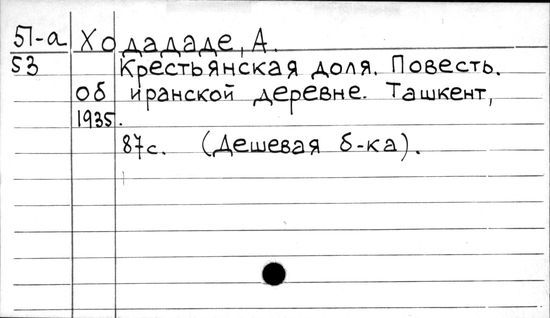 51-а Ходададе, А.
53 Крестьянская доля. Повесть.
об иранской деревне. Ташкент,
1935.
87с. (Дешевая б-ка).